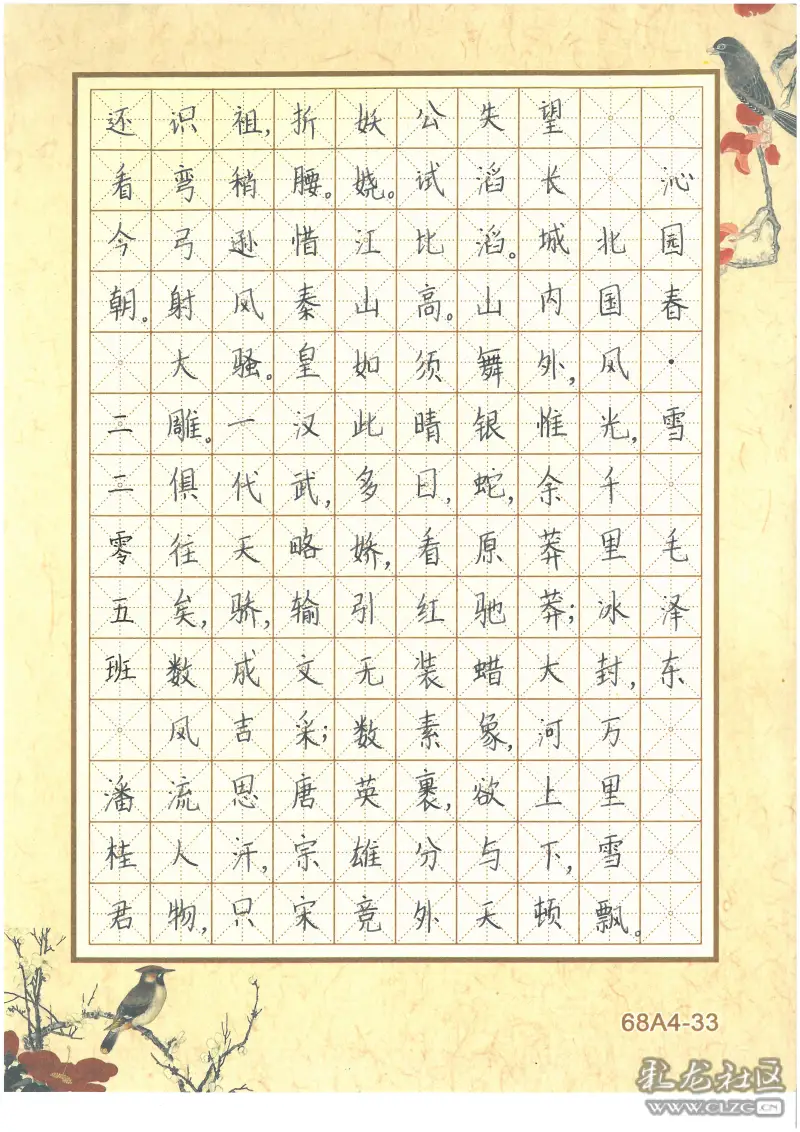 沁园春·雪 毛泽东
北国风光,千里冰封,万里雪飘。
望长城内外,惟余莽莽;大河上下,顿
失滔滔。山舞银蛇,原驰蜡象,欲与天
公试比高。须晴日,看红装素裹,分外
妖娆。江山如此多娇,引无数英雄竞
折腰。惜秦皇汉武,略输文采;唐宗宋
祖,稍逊风骚。一代天骄,成吉思汗,只
识弯弓射大雕。俱往矣,数风流人物,
还看今朝。 二二零五班 潘桂君
68A4-33
WWW.CLZG.CN